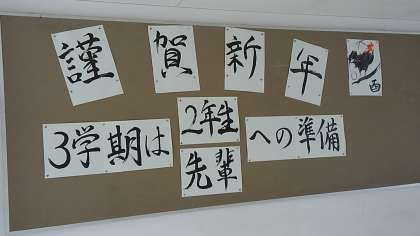 謹賀新年
酉
3学期は
2年生
先輩
への準備